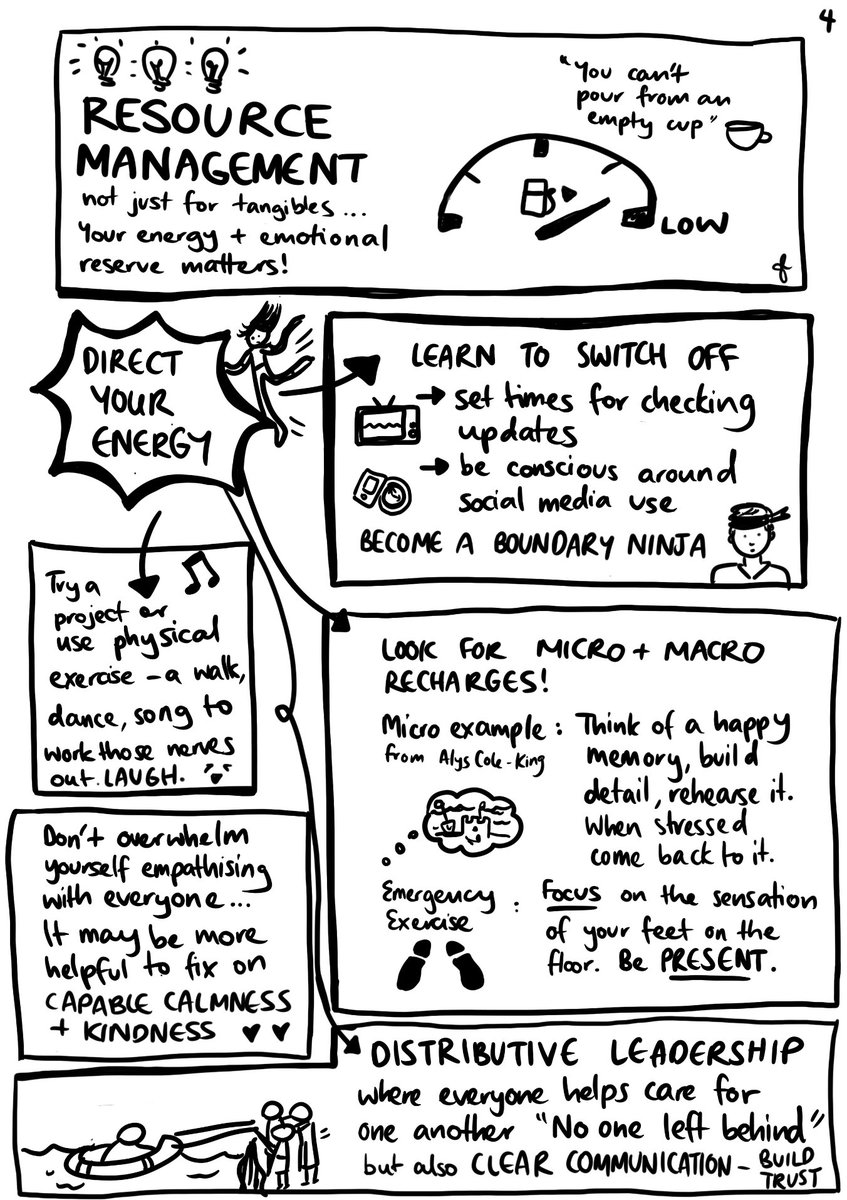 4
RESOURCE
MANAGEMENT
not just for tangibles...
Your energy + emotional
reserve matters!
"You can't
pour from an
empty cup"
LOW
DIRECT
YOUR
ENERGY
LEARN TO SWITCH OFF
→ set times for checking
updates
→ be conscious around
social media use
BECOME A BOUNDARY NINJA
Try a
project or
use physical
exercise - a walk,
dance, song to
work those nerves
out. LAUGH.
LOOK FOR MICRO + MACRO
RECHARGES!
Micro example : Think of a happy
from Alys Cole-King
memory, build
detail, rehearse it.
When stressed
come back to it.
Emergency
Exercise : Focus on the sensation
of your feet on the
floor. Be PRESENT.
Don't overwhelm
yourself empathising
with everyone...
It may be more
helpful to fix on
CAPABLE CALMNESS
+ KINDNESS ♥ ♥
DISTRIBUTIVE LEADERSHIP
where everyone helps care for
one another "No one left behind"
but also CLEAR COMMUNICATION - BUILD
TRUST